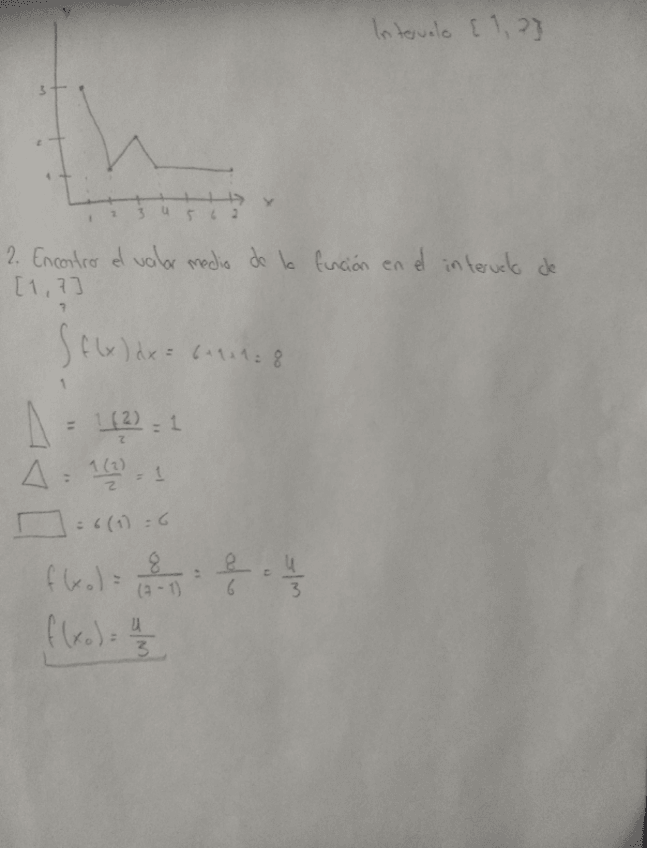 Intervalo [1,7]
y
3
2
1
1 2 3 4 5 6 7 x
2. Encontrar el valor medio de la función en el intervalo de
[1,7]
7
∫ f(x)dx = 6+1+1 = 8
1
= 1(2)/2 = 1
= 1(2)/2 = 1
= 6(1) = 6
f(x₀) = 8/(7-1) = 8/6 = 4/3
f(x₀) = 4/3